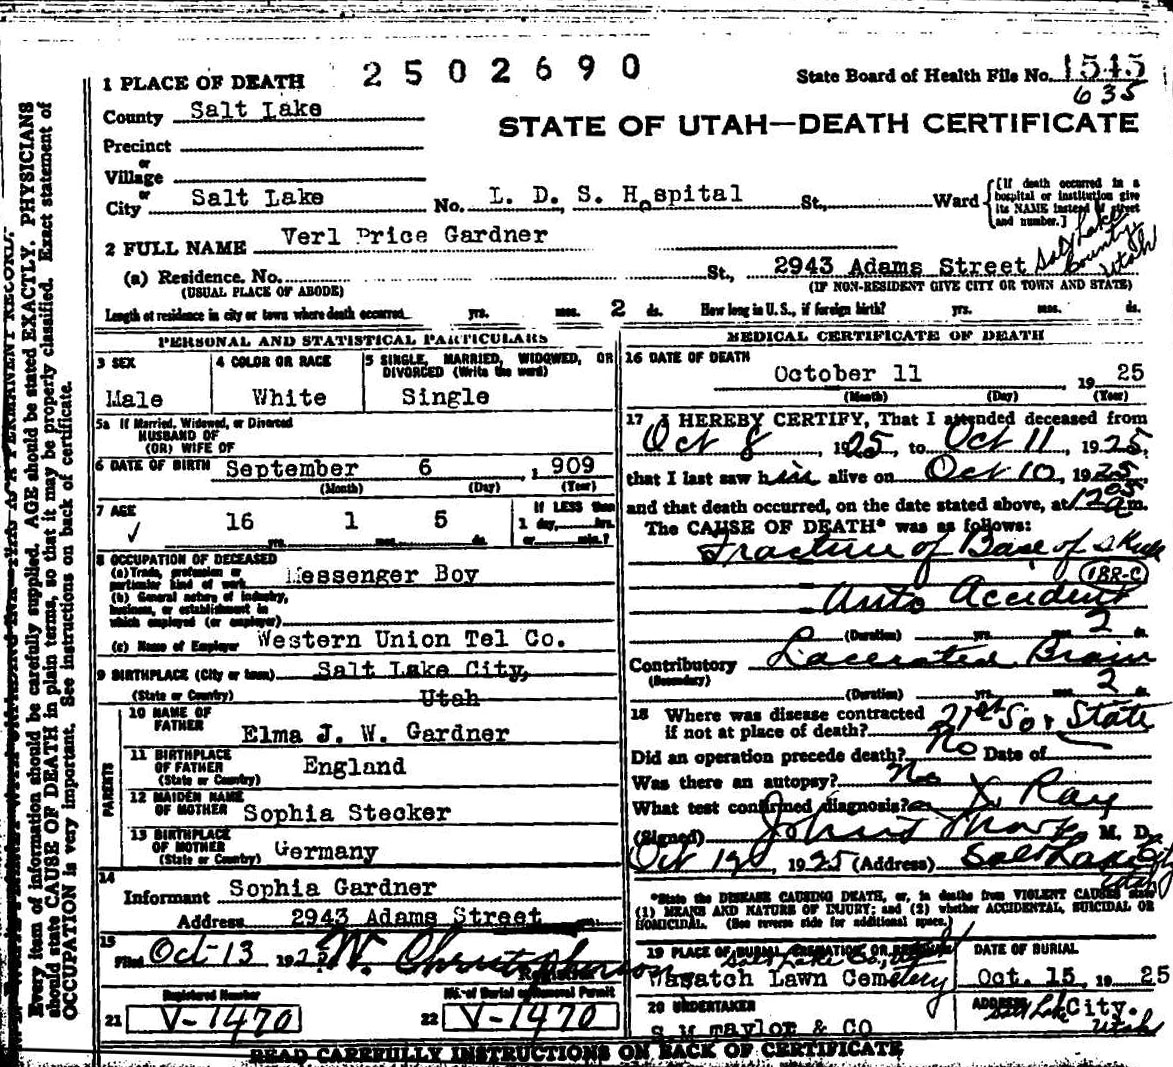 1 PLACE OF DEATH
2502690
State Board of Health File No. 1545
635
County Salt Lake
STATE OF UTAH—DEATH CERTIFICATE
Precinct
or
Village
or
City Salt Lake No. L. D. S. Hospital St., Ward
{If death occurred in a
hospital or institution give
its NAME instead of street
and number.]
2 FULL NAME Verl Price Gardner
(a) Residence. No. St., 2943 Adams Street Salt Lake County, Utah
(USUAL PLACE OF ABODE) (IF NON-RESIDENT GIVE CITY OR TOWN AND STATE)
Length of residence in city or town where death occurred yrs. mos. 2 ds. How long in U. S., if foreign birth? yrs. mos. ds.
PERSONAL AND STATISTICAL PARTICULARS
3 SEX
Male
4 COLOR OR RACE
White
5 SINGLE, MARRIED, WIDOWED, OR
DIVORCED (Write the word)
Single
5a If Married, Widowed, or Divorced
HUSBAND OF
(OR) WIFE OF
6 DATE OF BIRTH September 6 , 1909
(Month) (Day) (Year)
7 AGE
16 1 5
yrs. mos. ds.
If LESS than
1 day, hrs.
or min.?
8 OCCUPATION OF DECEASED
(a) Trade, profession or
particular kind of work Messenger Boy
(b) General nature of industry,
business, or establishment in
which employed (or employer)
(c) Name of Employer Western Union Tel Co.
9 BIRTHPLACE (City or town) Salt Lake City,
(State or Country) Utah
PARENTS
10 NAME OF
FATHER Elma J. W. Gardner
11 BIRTHPLACE
OF FATHER England
(State or Country)
12 MAIDEN NAME
OF MOTHER Sophia Stecker
13 BIRTHPLACE
OF MOTHER Germany
(State or Country)
14
Informant Sophia Gardner
Address 2943 Adams Street
15
Filed Oct-13 1925 W. Christopherson
Registrar
Registered Number
21 V-1470
No. of Burial or Removal Permit
22 V-1470
MEDICAL CERTIFICATE OF DEATH
16 DATE OF DEATH
October 11 , 1925
(Month) (Day) (Year)
17 I HEREBY CERTIFY, That I attended deceased from
Oct 8, 1925, to Oct 11, 1925,
that I last saw him alive on Oct 10, 1925,
and that death occurred, on the date stated above, at 1205 a m.
The CAUSE OF DEATH* was as follows:
Fracture of Base of Skull
188-C
Auto Accident
(Duration) yrs. mos. 2 ds.
Contributory Lacerated Brain
(Secondary)
(Duration) yrs. mos. 2 ds.
18 Where was disease contracted
if not at place of death? 21st So & State
Did an operation precede death? No Date of
Was there an autopsy? No
What test confirmed diagnosis? X Ray
(Signed) M. D.
Oct 12, 1925 (Address) Salt Lake City
Utah
*State the DISEASE CAUSING DEATH, or, in deaths from VIOLENT CAUSES state
(1) MEANS AND NATURE OF INJURY; and (2) whether ACCIDENTAL, SUICIDAL OR
HOMICIDAL. (See reverse side for additional space.)
19 PLACE OF BURIAL, CREMATION OR REMOVAL
Salt Lake Co., Utah
Wasatch Lawn Cemetery
DATE OF BURIAL
Oct. 15, 1925
20 UNDERTAKER
S M Taylor & CO
ADDRESS
Salt Lake City.
Utah
READ CAREFULLY INSTRUCTIONS ON BACK OF CERTIFICATE
Every item of information should be carefully supplied. AGE should be stated EXACTLY. PHYSICIANS
should state CAUSE OF DEATH in plain terms, so that it may be properly classified. Exact statement of
OCCUPATION is very important. See instructions on back of certificate.